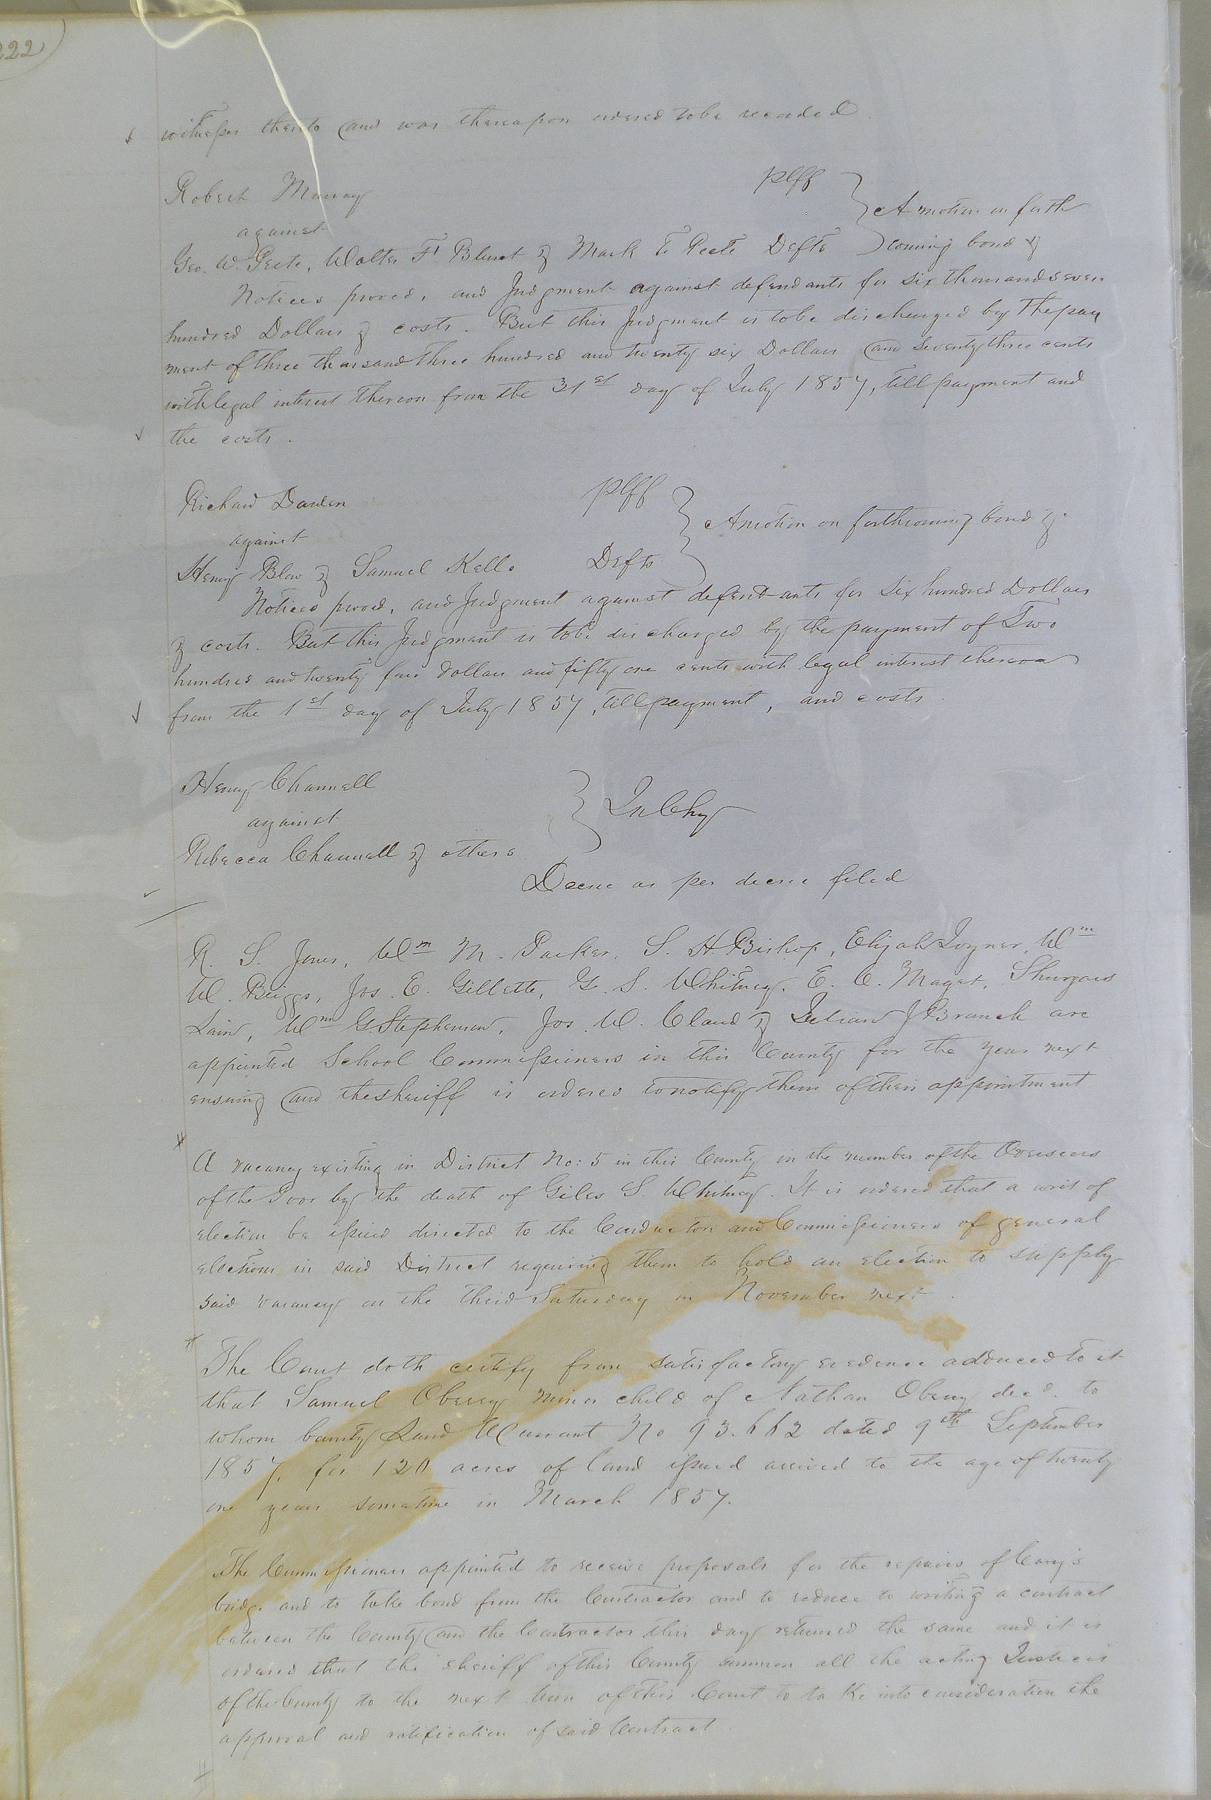 222
witnesses thereto and was thereupon ordered to be recorded
Robert Murray plff
against
A motion on forth
Geo. W. Peete, Walter F. Blunt & Mark E. Peete Defts
coming bond &
Notices proved, and Judgment against defendants for six thousand seven
hundred Dollars & costs. But this Judgment is to be discharged by the pay
ment of three thousand three hundred and twenty six Dollars and seventy three cents
with legal interest thereon from the 31st day of July 1857, till payment and
the costs.
Richard Darden plff
against
A motion on forthcoming bond &.
Henry Blow & Samuel Kello Defts
Notices proved, and Judgment against defendants for six hundred Dollars
& costs. But this Judgment is to be discharged by the payment of Two
hundred and twenty four dollars and fifty one cents with legal interest thereon
from the 1st day of July 1857, till payment, and costs.
Henry Channell
against
In Chy
Rebecca Channell & others
Decree as per decree filed
R. S. Jones, Wm M. Parker, S. H. Bishop, Elijah Joyner, Wm
W. Briggs, Jos. E. Gillette, G. S. Whitney, E. C. Maget,
Lain, Wm G Stephenson, Jos. W. Claud & J Branch are
appointed School Commissioners in this County for the year next
ensuing and the sheriff is ordered to notify them of their appointment
A vacancy existing in District No: 5 in this County in the number of the Overseers
of the Poor by the death of Giles S. Whitney. It is ordered that a writ of
election be issued directed to the Conductors and Commissioners of general
elections in said District requiring them to hold an election to supply
said vacancy on the third Saturday in November next.
The Court doth certify from satisfactory evidence adduced to it
that Samuel Oberry minor child of Nathan Oberry decd. to
whom bounty Land Warrant No 93.662 dated 9th September
1857, for 120 acres of land issued arrived to the age of twenty
one years sometime in March 1857.
The Commissioners appointed to receive proposals for the repairs of Cary's
bridge and to take bond from the Contractor and to reduce to writing a contract
between the County and the Contractor this day returned the same and it is
ordered that the sheriff of this County summon all the acting Justices
of the County to the next term of this Court to take into consideration the
approval and ratification of said Contract.